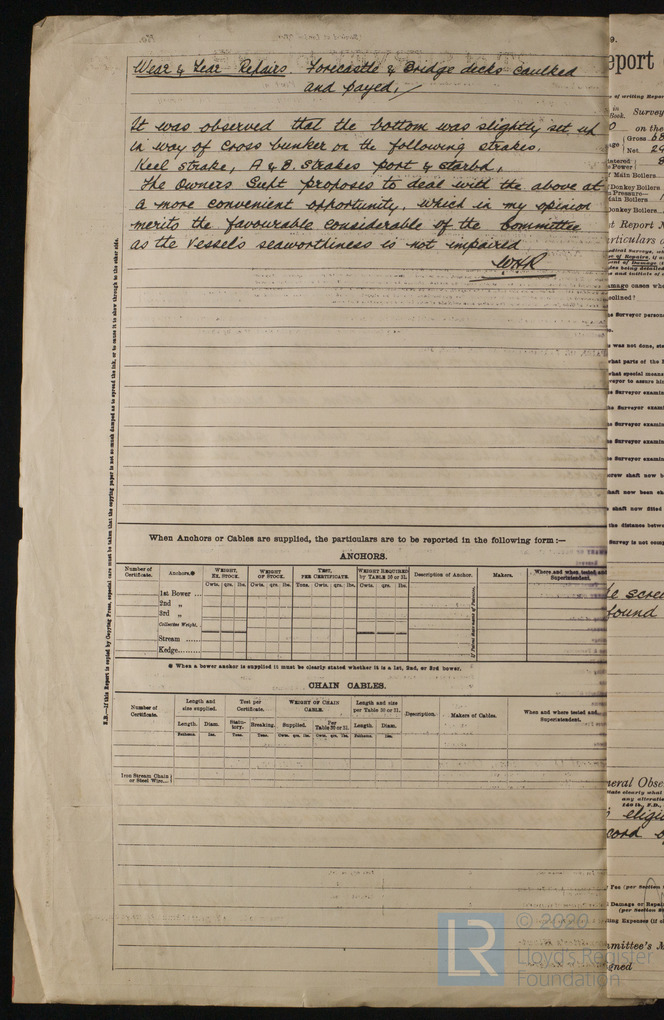 Wear & Tear Repairs. Forecastle & Bridge decks caulked
and payed.
It was observed that the bottom was slightly set up
in way of cross bunker on the following strakes.
Keel strake, A & B. Strakes port & starbd,
The Owners Supt proposes to deal with the above at
a more convenient opportunity, which in my opinion
merits the favourable considerable of the Committee
as the vessel's seaworthiness is not impaired
WHR
N.B.—If this Report is copied by Copying Press, especial care must be taken that the copying paper is not so much damped as to spread the ink, or to cause it to show through to the other side.
When Anchors or Cables are supplied, the particulars are to be reported in the following form:—
ANCHORS.
Number of Certificate. Anchors.* WEIGHT, EX. STOCK. WEIGHT OF STOCK. TEST, PER CERTIFICATE. WEIGHT REQUIRED by TABLE 30 or 31. Description of Anchor. Makers. Where and when tested and Superintendent.
Cwts. qrs. lbs. Cwts. qrs. lbs. Tons. Cwts. qrs. lbs. Cwts. qrs. lbs.
1st Bower ...
2nd „
3rd „
Collective Weight.
Stream ......
Kedge........
* When a bower anchor is supplied it must be clearly stated whether it is a 1st, 2nd, or 3rd bower.
CHAIN CABLES.
Number of Certificate. Length and size supplied. Test per Certificate. WEIGHT OF CHAIN CABLE. Length and size per Table 30 or 31. Description. Makers of Cables. When and where tested and Superintendent.
Length. Diam. Statutory. Breaking. Supplied. Per Table 30 or 31. Length. Diam.
Fathoms. Ins. Tons. Tons. Cwts. qrs. lbs. Cwts. qrs. lbs. Fathoms. Ins.
Iron Stream Chain or Steel Wire...
9.
eport
of writing Repor
Survey
on the
Gross
Net.
Power
Main Boilers
Donkey Boilers
Pressure—
ain Boilers
Donkey Boilers
t Report
rticulars
amage cases whe
oclined?
he Surveyor person
was not done, sta
what parts of the
what special means
veyor to assure hi
he Surveyor examin
he Surveyor examin
he Surveyor examin
he Surveyor examin
he Surveyor examin
crew shaft now b
haft now been ch
shaft now fitted
the distance betwe
Survey is not comp
le screw
found
neral Obse
tate clearly what
any alteratio
eligi
cord
Fee (per Section
Damage or Repai
(per Section
lling Expenses (if
mmittee's M
gned
LR
© 2020
Lloyd's Register
Foundation